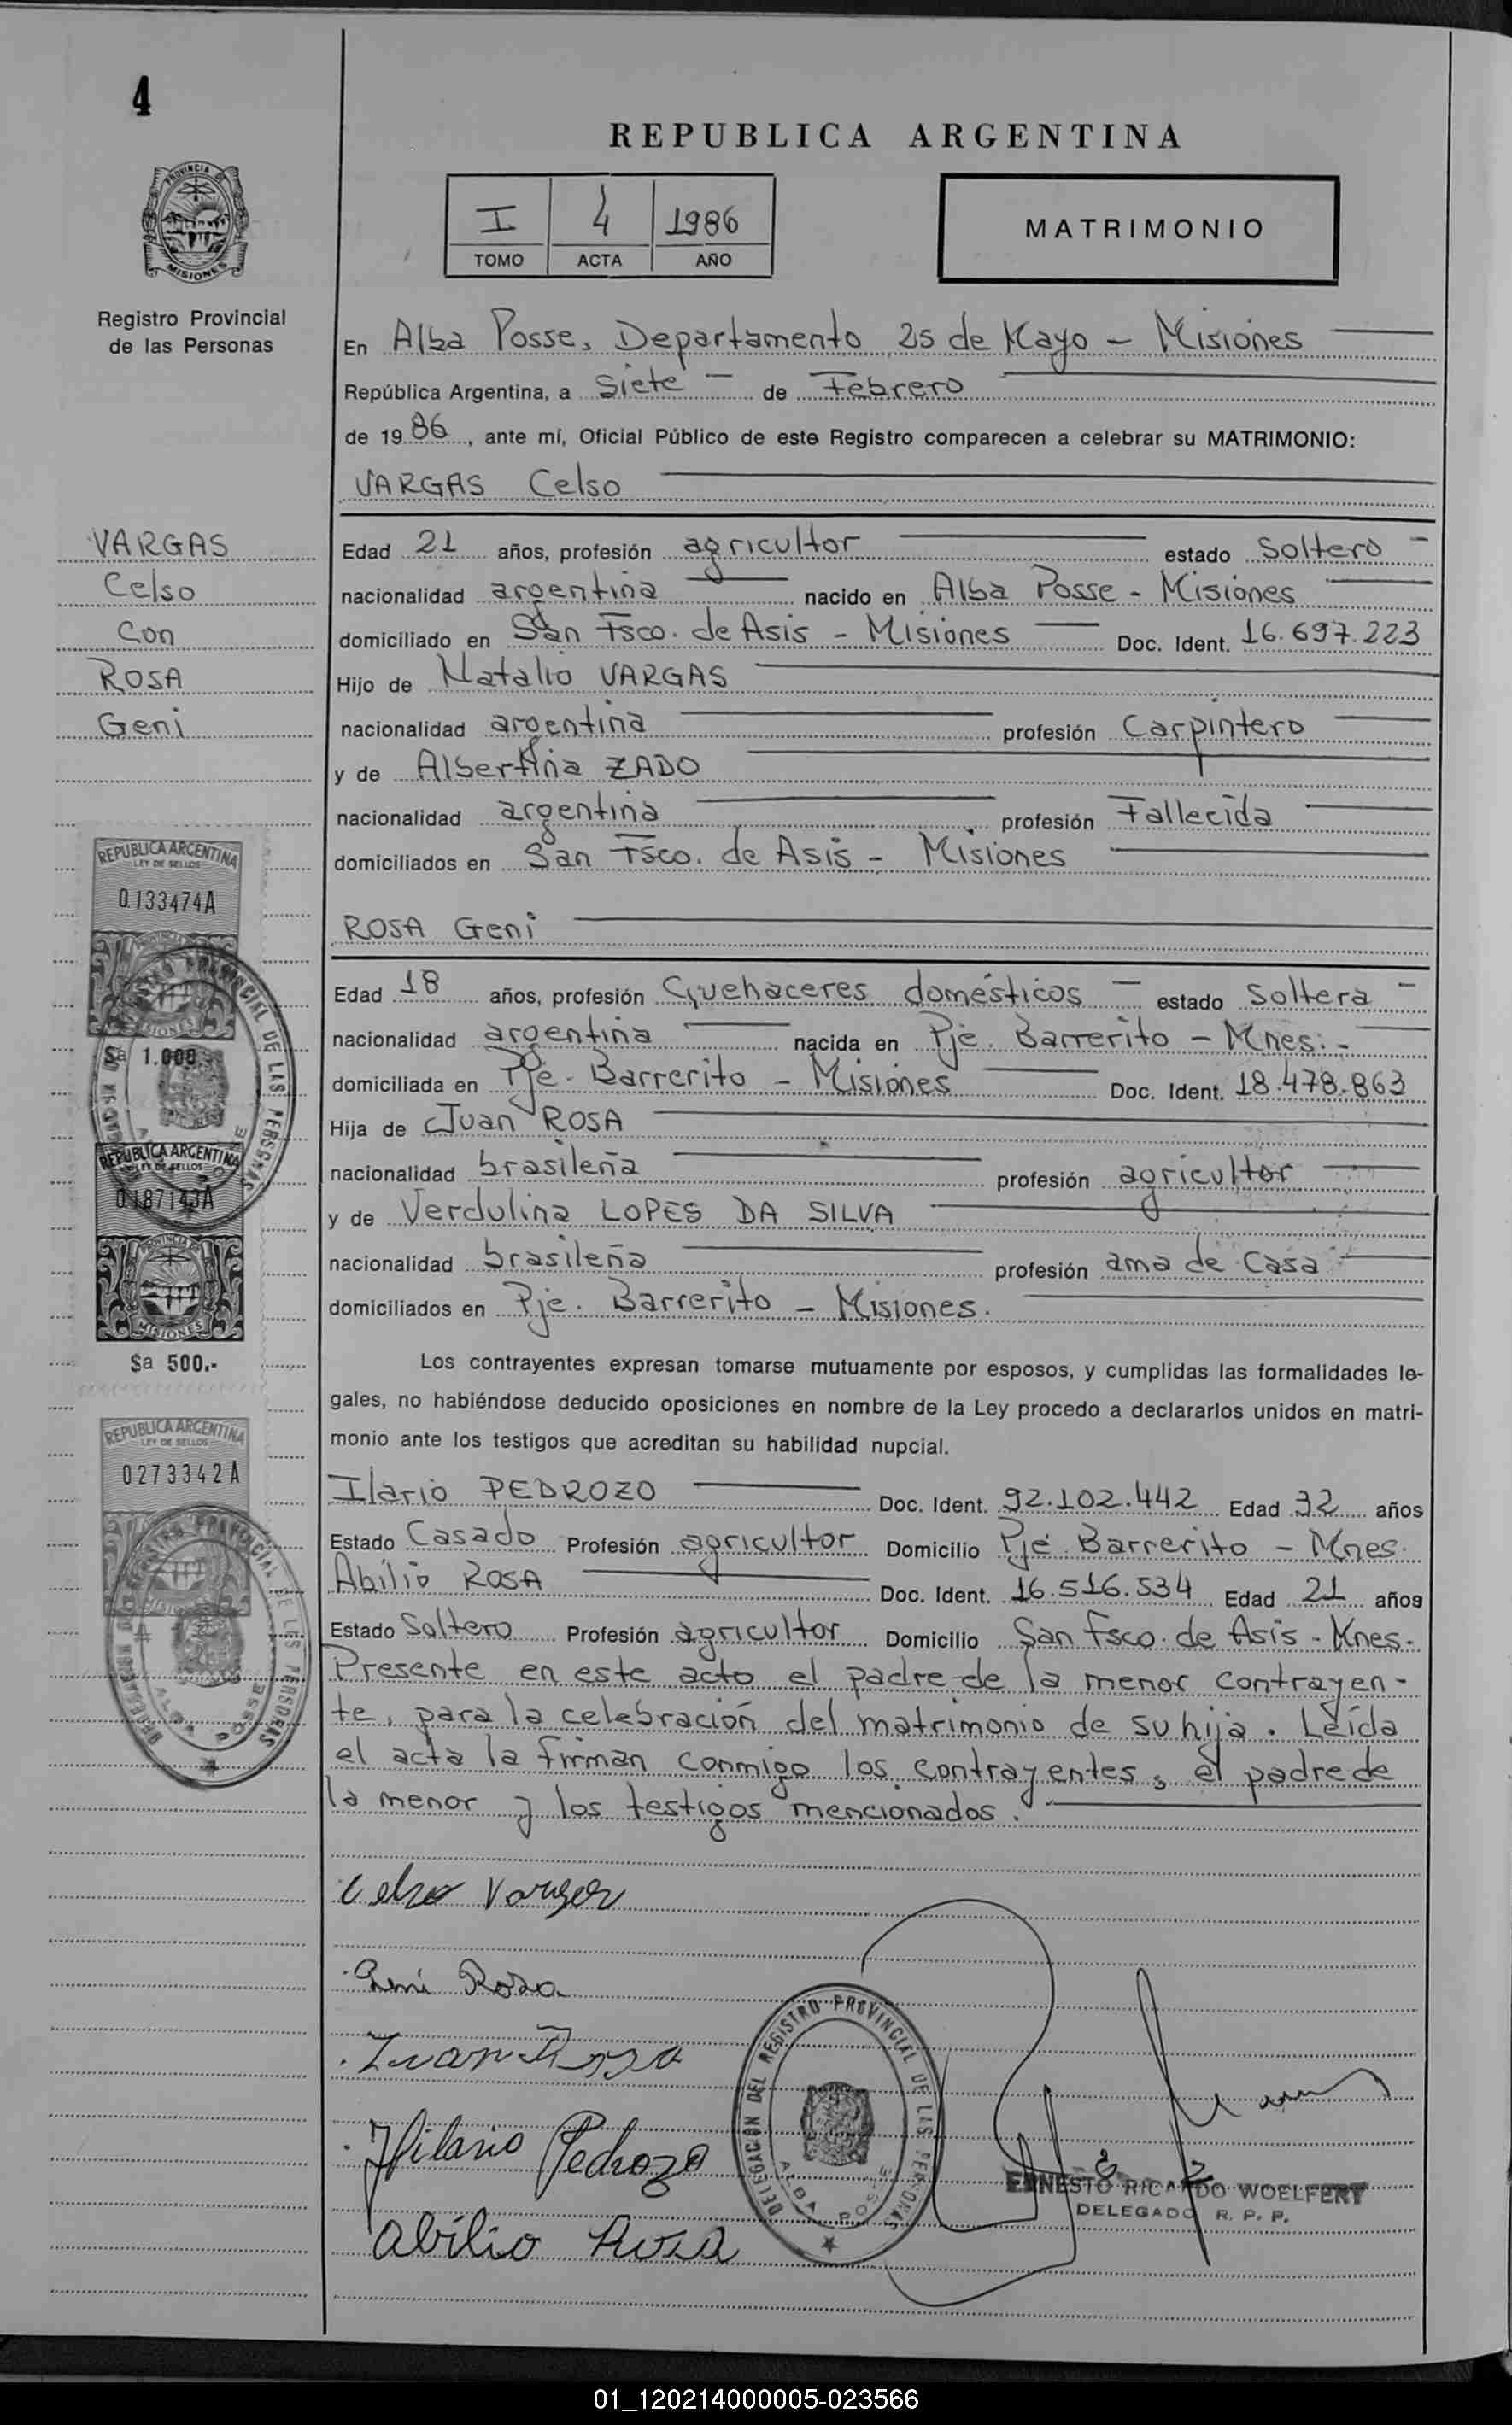 4
REPUBLICA ARGENTINA
I 4 1986
TOMO ACTA AÑO
MATRIMONIO
PROVINCIA DE
MISIONES
Registro Provincial
de las Personas
En Alba Posse, Departamento 25 de Mayo - Misiones
República Argentina, a Siete - de Febrero
de 1986, ante mí, Oficial Público de este Registro comparecen a celebrar su MATRIMONIO:
VARGAS Celso
VARGAS
Celso
Con
ROSA
Geni
Edad 21 años, profesión agricultor estado Soltero -
nacionalidad argentina nacido en Alba Posse - Misiones
domiciliado en San Fsco. de Asis - Misiones Doc. Ident. 16.697.223
Hijo de Natalio VARGAS
nacionalidad argentina profesión Carpintero
y de Albertina ZADO
nacionalidad argentina profesión Fallecida
domiciliados en San Fsco. de Asis - Misiones
ROSA Geni
Edad 18 años, profesión Quehaceres domésticos - estado Soltera -
nacionalidad argentina nacida en Pje. Barrerito - Mnes. -
domiciliada en Pje. Barrerito - Misiones Doc. Ident. 18.478.863
Hija de Juan ROSA
nacionalidad brasileña profesión agricultor
y de Verdulina LOPES DA SILVA
nacionalidad brasileña profesión ama de Casa
domiciliados en Pje. Barrerito - Misiones.
REPUBLICA ARGENTINA
LEY DE SELLOS
0.133474A
MISIONES
$a 1.000
REPUBLICA ARGENTINA
LEY DE SELLOS
0.187143A
PROVINCIA DE
MISIONES
$a 500.-
REPUBLICA ARGENTINA
LEY DE SELLOS
0273342A
ALBA POSSE
Los contrayentes expresan tomarse mutuamente por esposos, y cumplidas las formalidades le-
gales, no habiéndose deducido oposiciones en nombre de la Ley procedo a declararlos unidos en matri-
monio ante los testigos que acreditan su habilidad nupcial.
Ilario PEDROZO Doc. Ident. 92.102.442 Edad 32 años
Estado Casado Profesión agricultor Domicilio Pje Barrerito - Mnes.
Abilio ROSA Doc. Ident. 16.516.534 Edad 21 años
Estado Soltero Profesión agricultor Domicilio San Fsco. de Asis - Mnes.
Presente en este acto el padre de la menor contrayen-
te, para la celebración del matrimonio de su hija. Leída
el acta la firman conmigo los contrayentes, el padre de
la menor y los testigos mencionados.
Celso Vargas
Geni Rosa
Juan Rosa
Hilario Pedrozo
Abilio Rosa
DELEGACIÓN DEL REGISTRO PROVINCIAL DE LAS PERSONAS
ALBA POSSE
ERNESTO RICARDO WOELFERT
DELEGADO R. P. P.
01_120214000005-023566